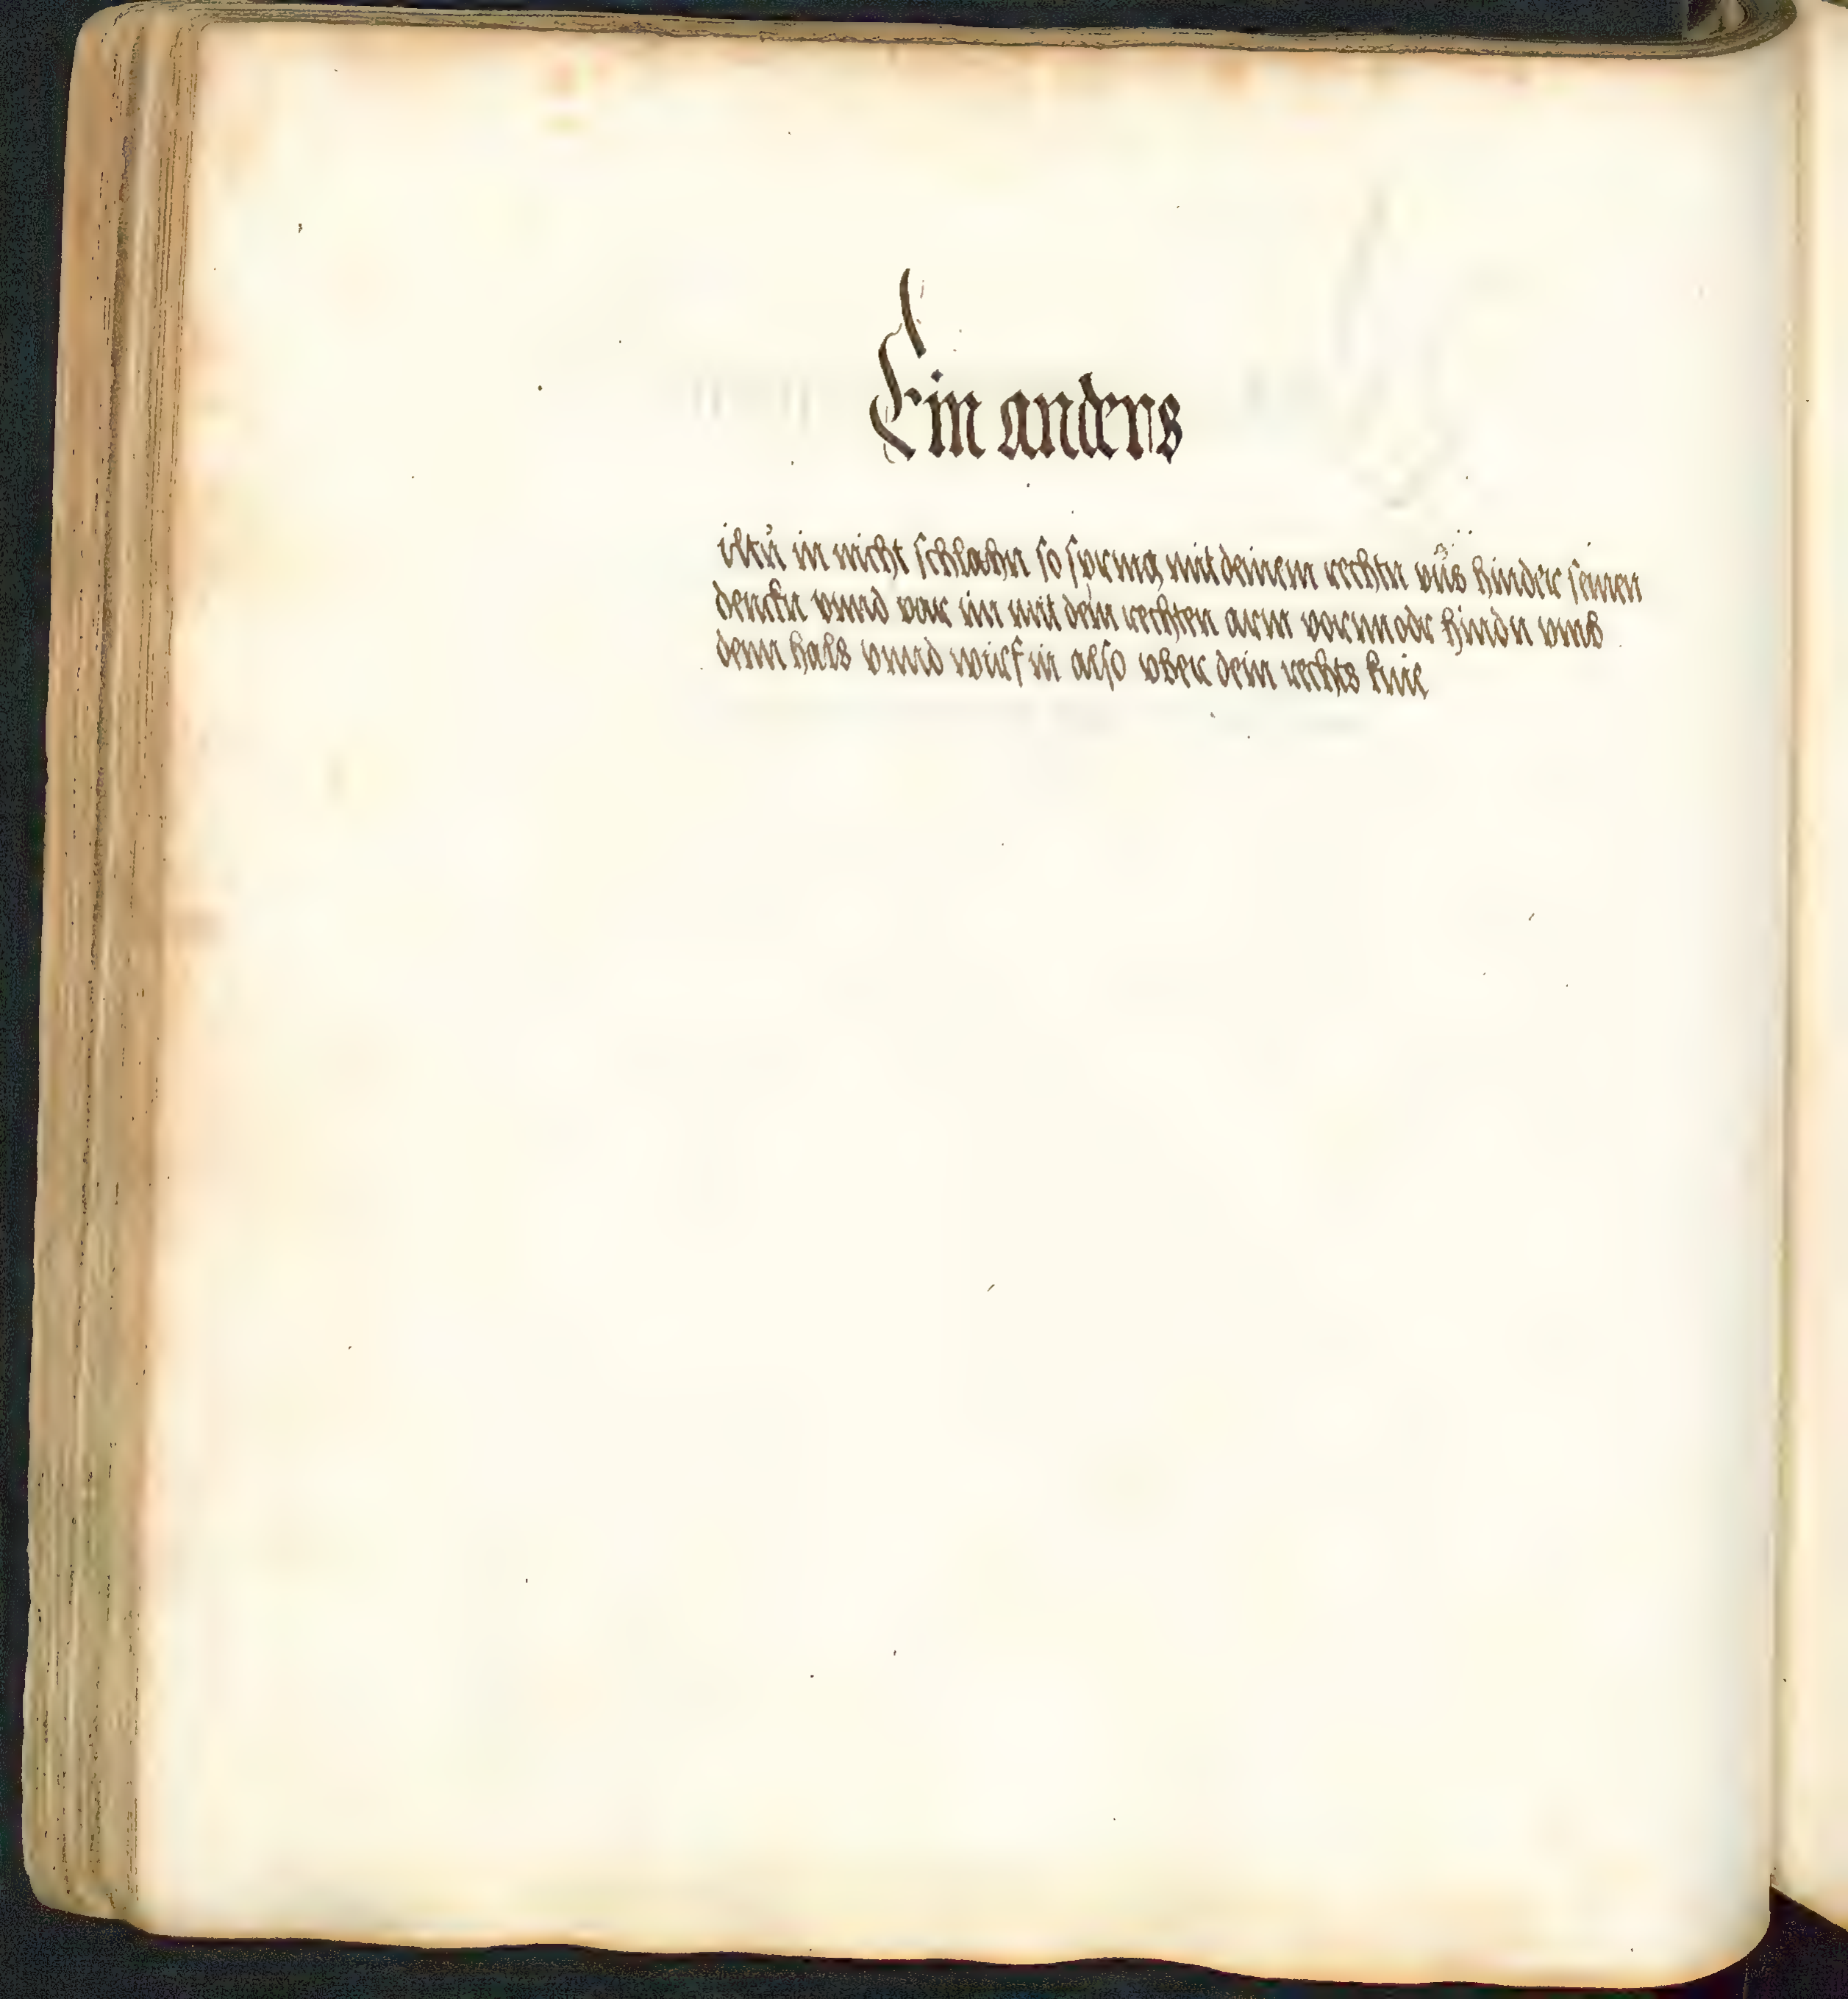 Ein anders
iltu in nicht schlahn so spring mit deinem rechtn vüs hinder seinen
denckn vnnd var im mit dein rechten arm vornn odr hindn vmb
denn hals vnnd wirf in also vber dein rechts knie